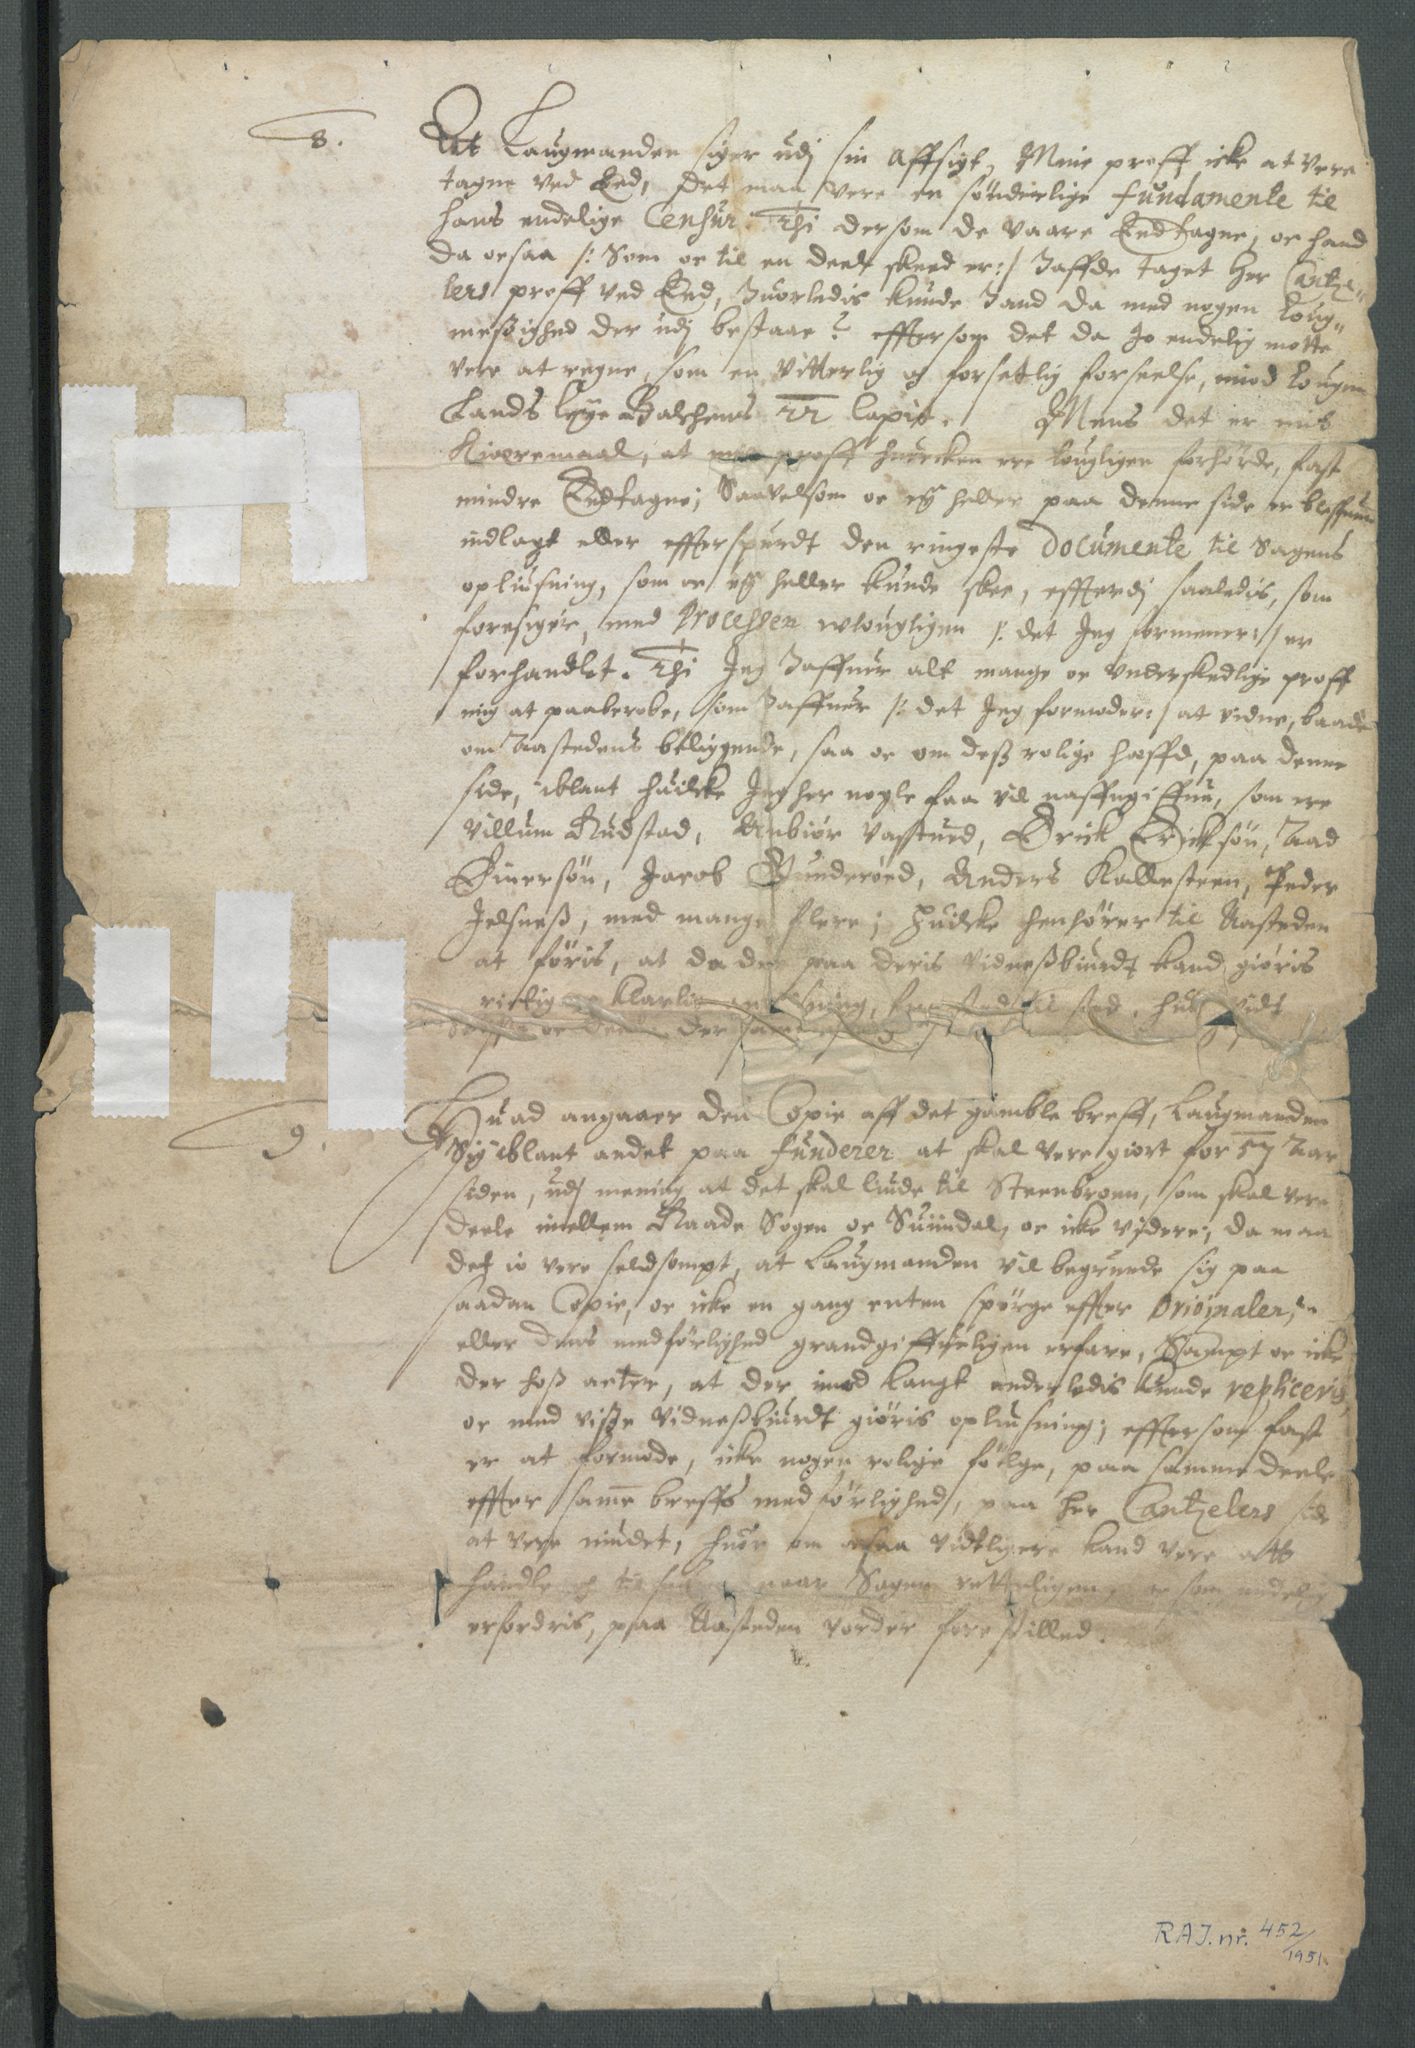 8.
At Laugmanden siger udj sin affsigt, Mine proff icke at vere
tagne ved Eed, det maa vere en sønderlige fundamente til
hans endelige Censur. Thi dersom de vaare Eedtagne, oc hand
da ocsaa /: Som oc til en deel skeed er :/ haffde taget Her Cantze-
lers proff ved Eed, huorledis kunde hand da med nogen loug-
meßighed der udj bestaae? effter som det da jo endelig motte
vere at regne, som en vitterlig og forsetlig forseelse, imod lougen
Lands leye Balchens capit. Mens det er mit
kieremaal, at mine proff huercken ere lougligen forhørde, fast
mindre Eedtagne; Saavelsom oc ey heller paa denne side er bleffuen
indlagt eller effterspurdt den ringeste documente til Sagens
opliusning, som oc ey heller kunde skee, efftterdj saaledis, som
foresiger, med Processen wlougligen /: det Jeg formener :/ er
forhandlet. Thi Jeg haffuer alt mange oc underskedlige proff
mig at paaberobe, som haffuer /: det Jeg formoder :/ at vidne, baade
om Aastedens beliggende, saa oc om deß rolige haffd, paa denne
side, iblant huilcke Jeg her nogle faa vil naffngiffue, som ere
Villum Rudstad, Anbiør Erick Ericksøn, Aad
Einersøn, Jacob Gunderøed, Anders Kallesteen, Peder
Jelsneß, med mange flere; huilcke henhører til Aasteden
at føris, at da der paa deris Vidneßbiurdt kand giøris
rictig oc klarlig fra sted til sted, hure vidt
oc der
9.
Huad angaaer den Copie aff det gamble breff, Laugmanden
Sig iblant andet paa funderer at skal vere giort for 57 Aar
siden, udj mening at det skal liude til Steenbroen, som skal vere
deele imellem Raade Sogen oc Suindal, oc icke videre; da maa
det io vere seldsompt, at Laugmanden vil begrunde sig paa
saadan Copie, oc icke en gang enten spørge effter originalen,
eller dens medførlighed grandgiffueligen erfare, Sampt oc icke
der hoß acter, at der imod langt anderledis kunde repliceris,
oc med visse Vidneßbiurdt giøris opliusning; effter som fast
er at formode, icke nogen rolige følge, paa samme deele
effter samme breffs medførlighed, paa her Cantzelers side
at vere niudet, huor om ocsaa vidtligere kand vere att
handle naar Sagen retteligen, som endelig
erfordris, paa Aasteden vorder forestilled.
RAJ. nr. 452/1951